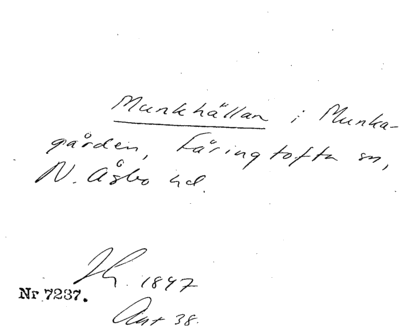 Munkhällan i Munka-
gården, Färingtofta sn,
N. Åsbo hd.
Th. 1847
Nr 7237.
Ant 38.